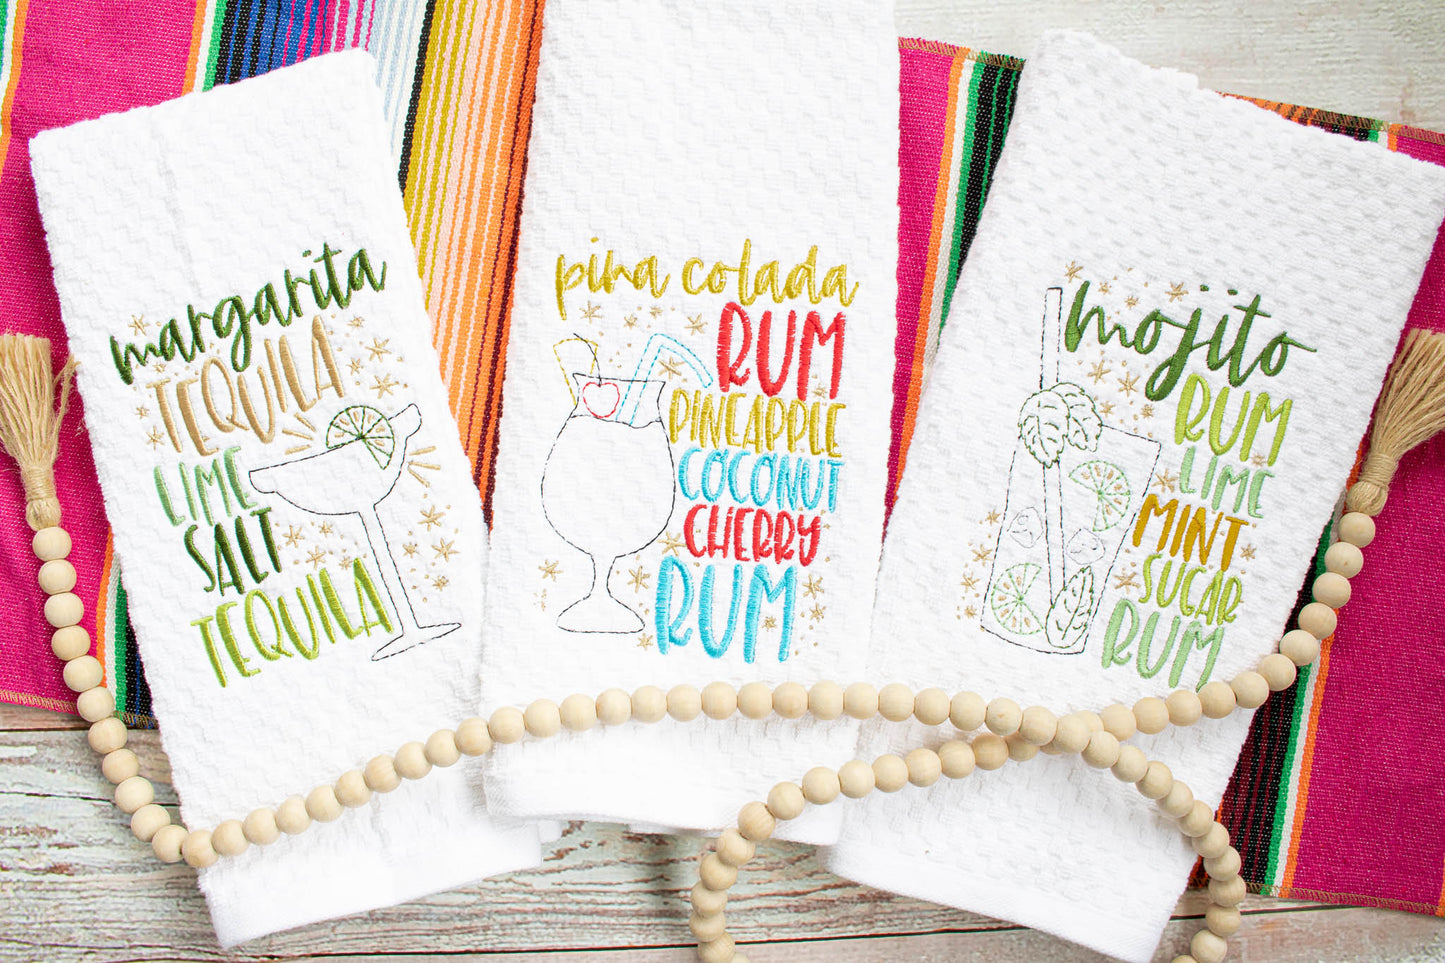 margarita
TEQUILA
LIME
SALT
TEQUILA
pina colada
RUM
PINEAPPLE
COCONUT
CHERRY
RUM
mojito
RUM
LIME
MINT
SUGAR
RUM